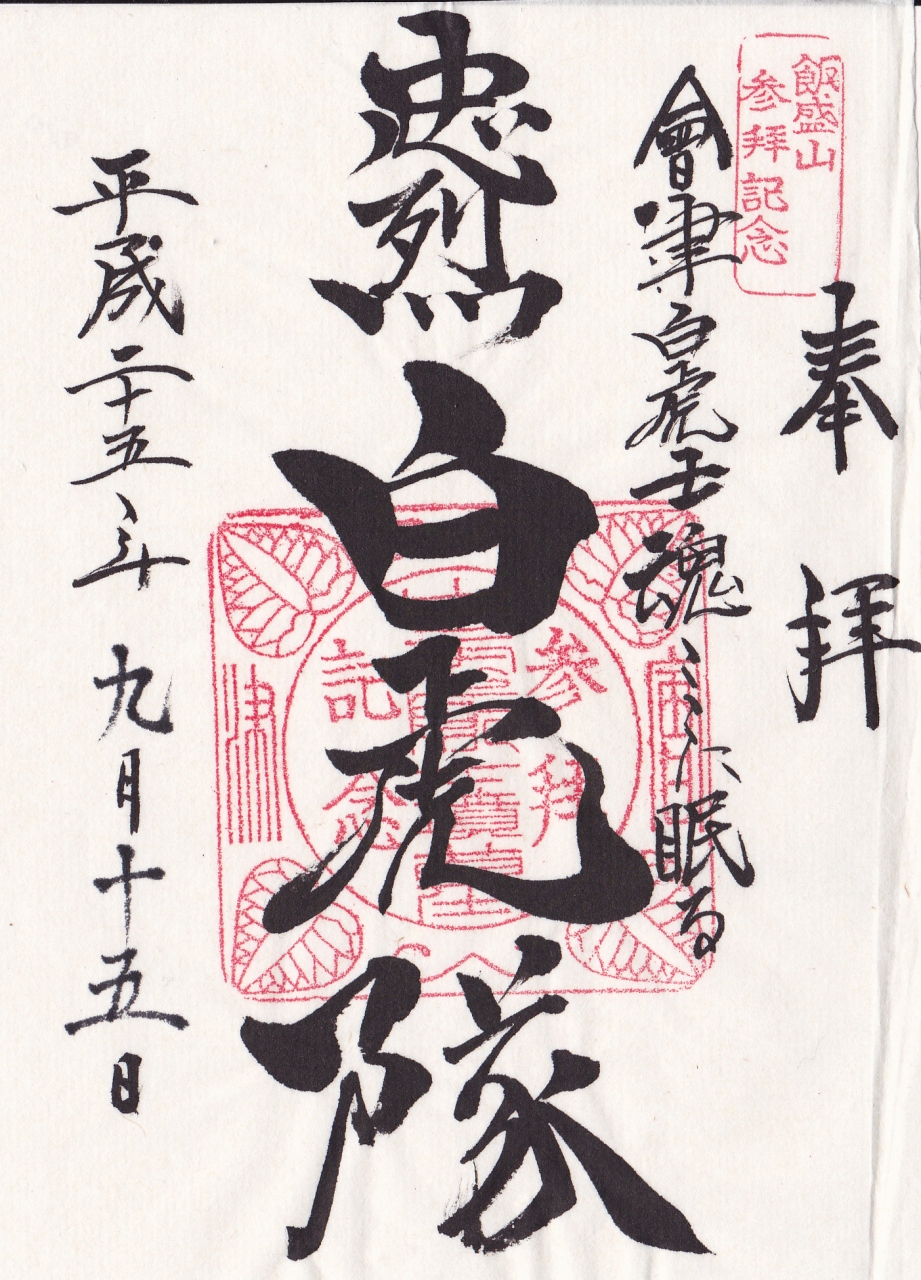 飯盛山
参拝記念
奉拝
會津白虎士魂ここに眠る
忠烈白虎隊
参拝
記念
津
平成二十五年九月十五日